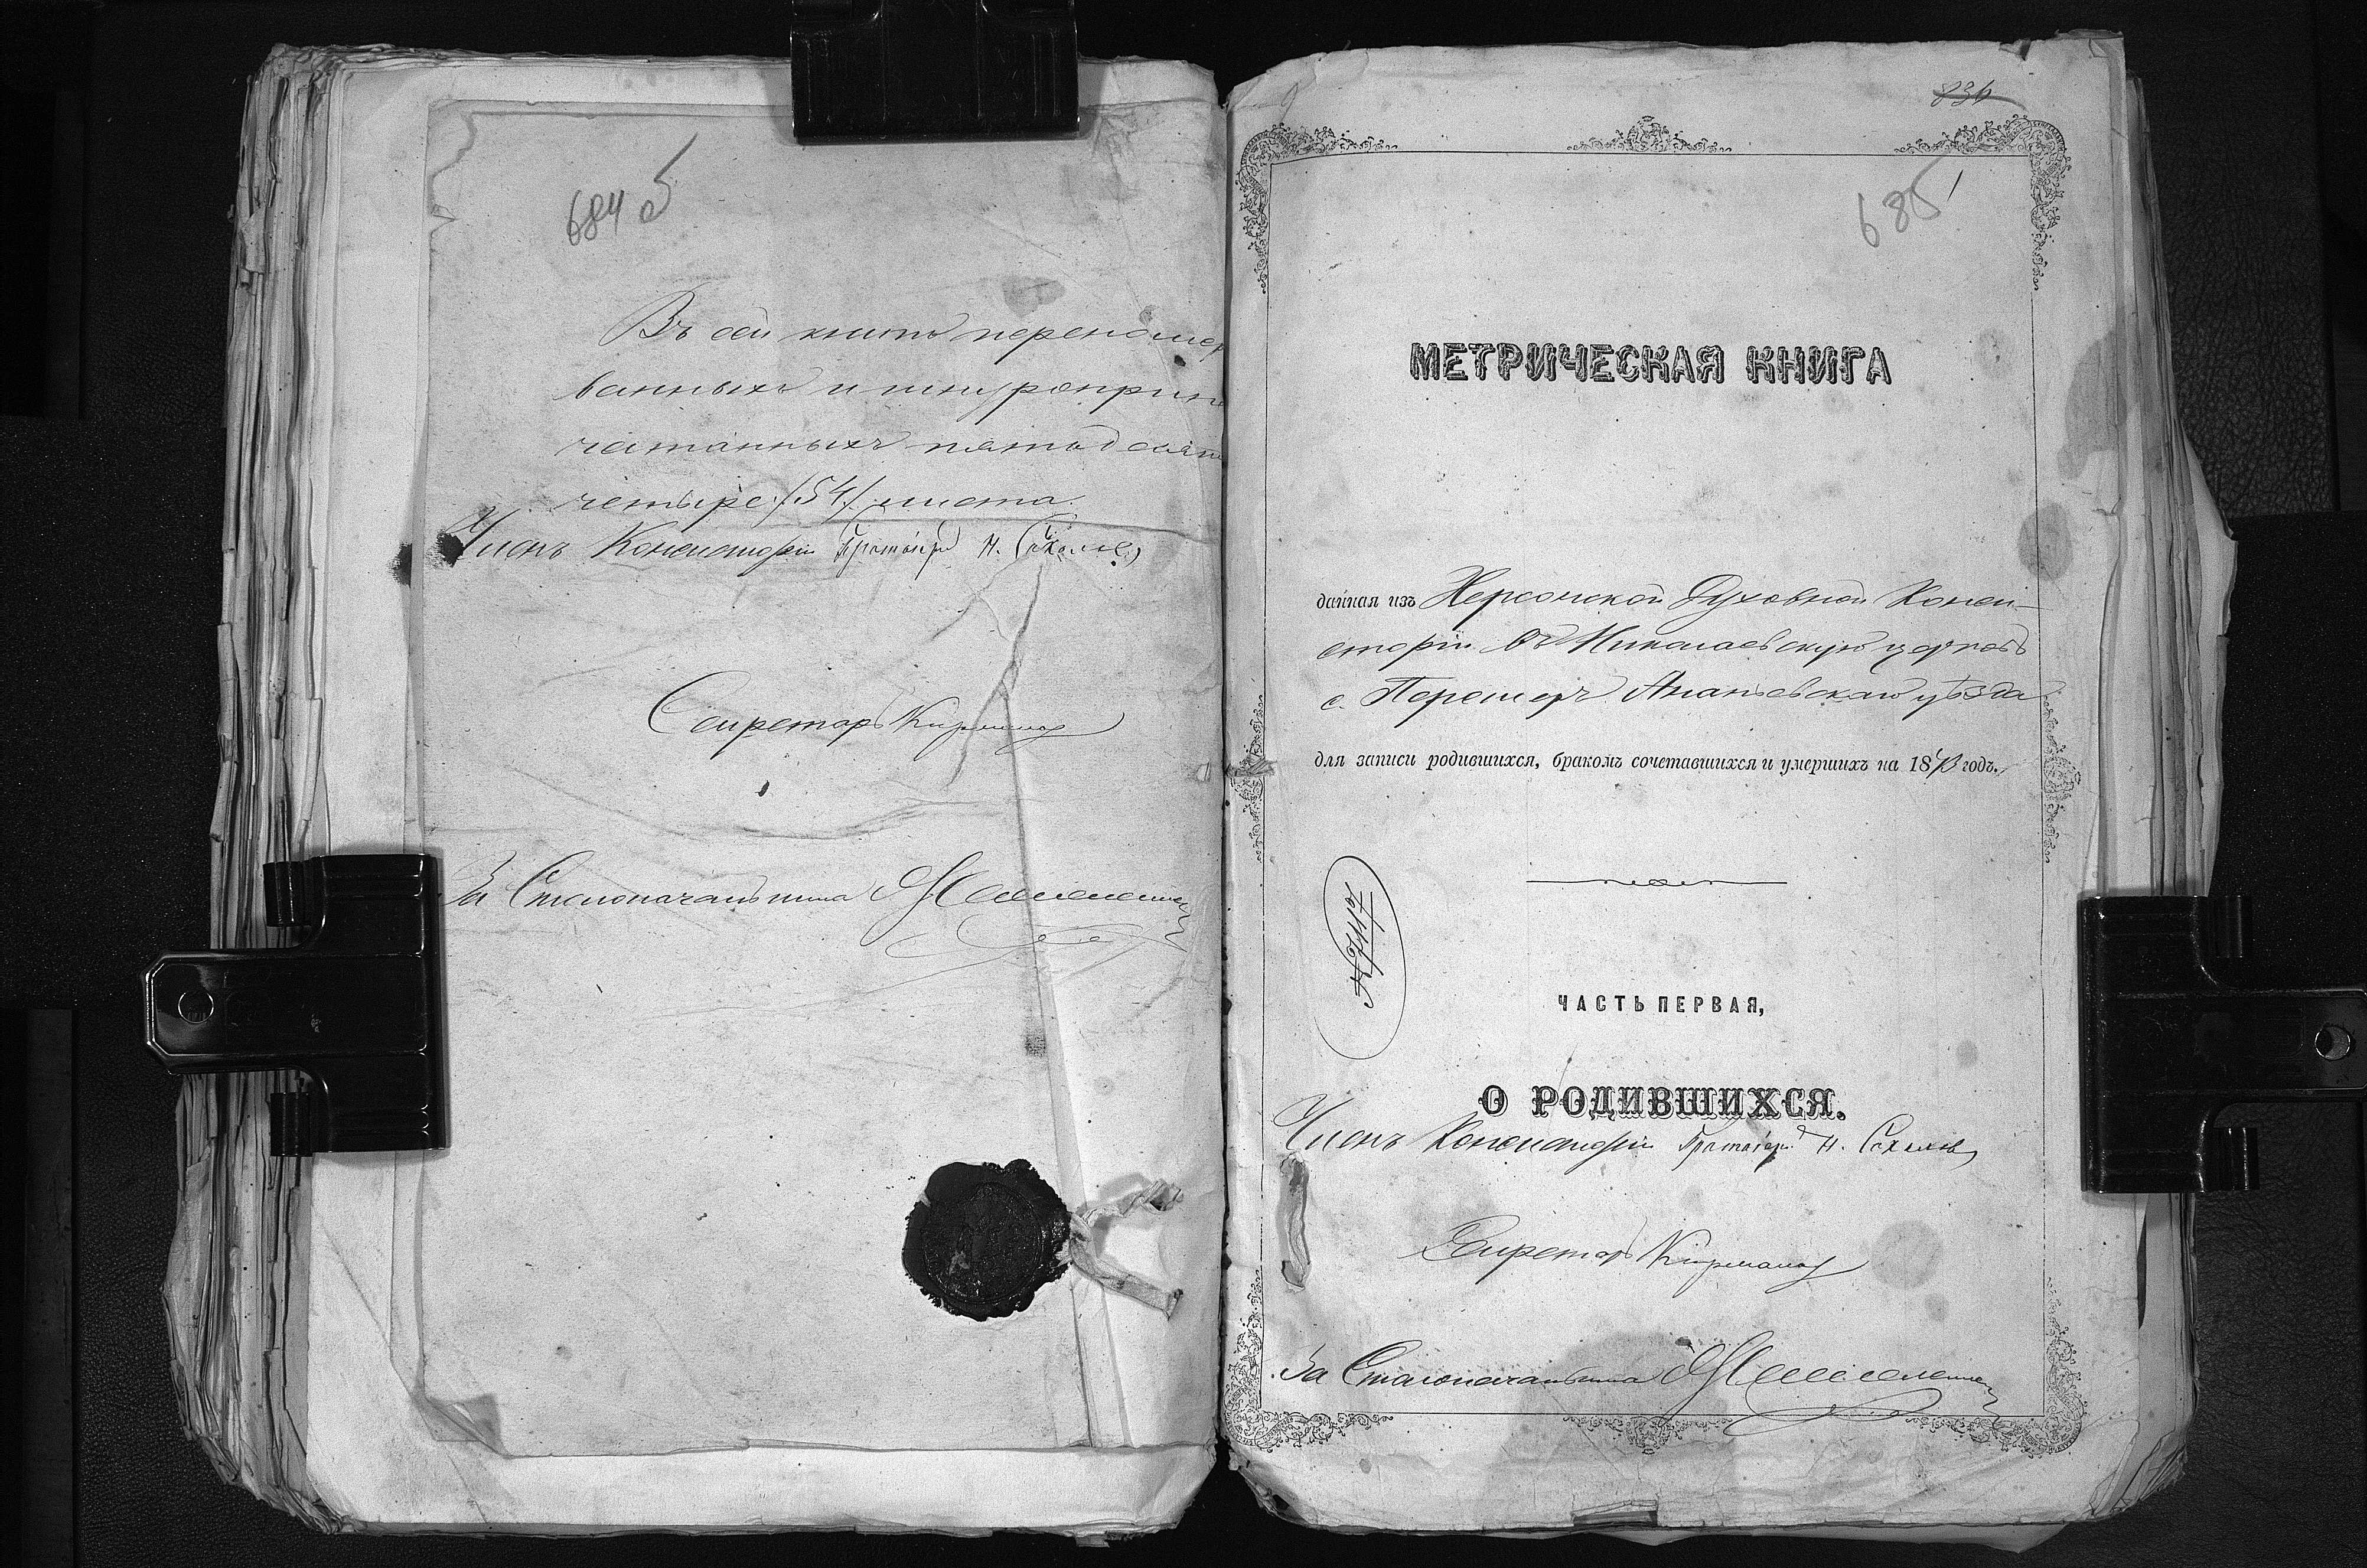 684 об
Въ сей книгѣ перенумеро
ванныхъ и шнуроприпе
чатанныхъ пятьдесятъ
четыре /54/ листа.
Членъ Консисторіи Протоіерей Н. Соколовъ
Секретарь
За Столоначальника
836
685
МЕТРИЧЕСКАЯ КНИГА
данная изъ Херсонской Духовной Конси-
сторіи въ Николаевскую церковь
с. Перешоръ Ананьевскаго уѣзда
для записи родившихся, бракомъ сочетавшихся и умершихъ на 1873 годъ.
ЧАСТЬ ПЕРВАЯ,
О РОДИВШИХСЯ.
Членъ Консисторіи Протоіерей Н. Соколовъ
Секретарь
За Столоначальника